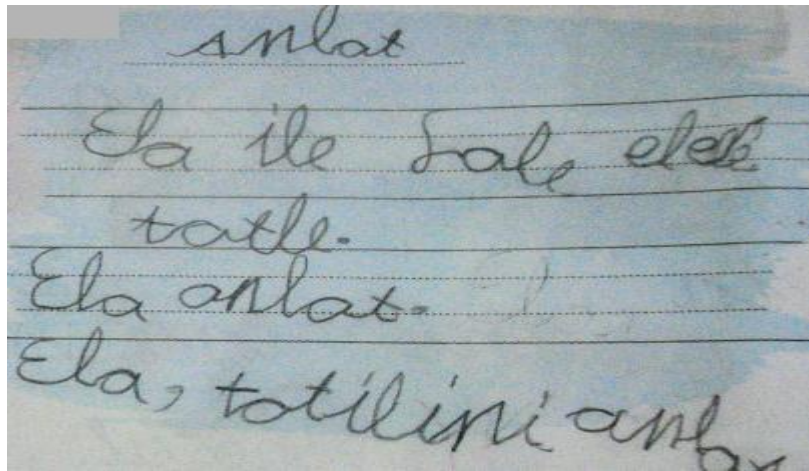 anlat
Ela ile Lale elele
tatle.
Ela anlat.
Ela, totilini anlat